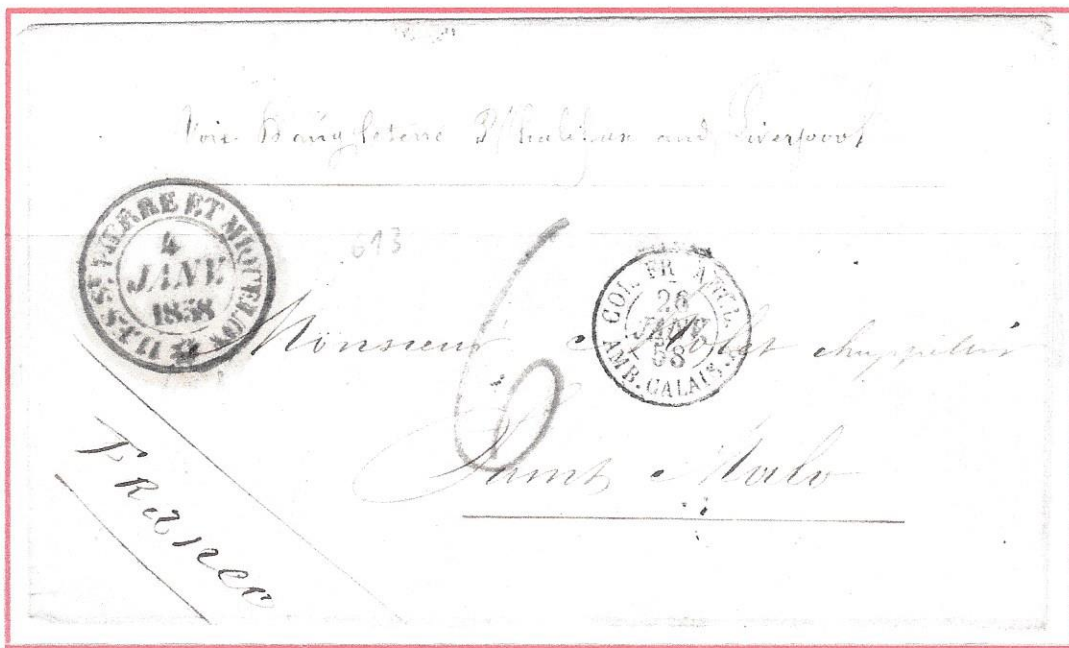 Voie D'angleterre P/halifax and Liverpool
ILES St PIERRE ET MIQUELON
4
JANV
1858
613
6
COL. FR. ANGL.
26
JANV
58
AMB. CALAIS
Monsieur
Saint Malo
France